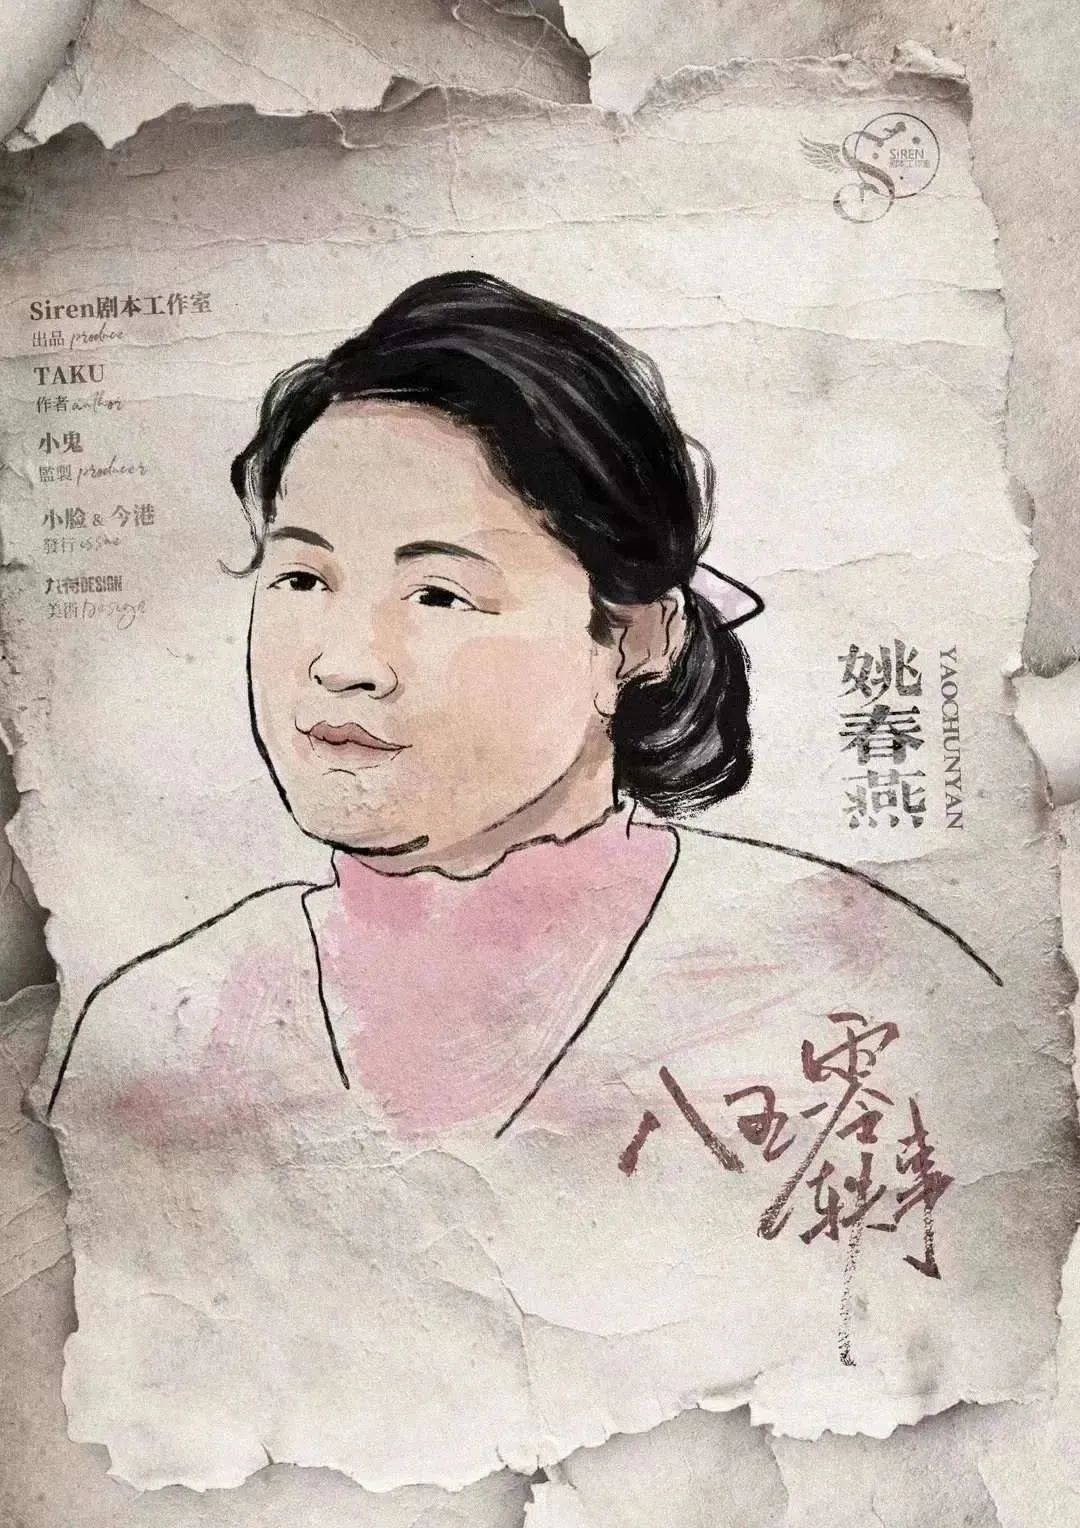 SiREN
剧本工作室
Siren剧本工作室
出品 produce
TAKU
作者 author
小鬼
監製 producer
小脸 & 今港
發行 issue
DESIGN
美術 Design
姚春燕
YAOCHUNYAN
八五零
轶事